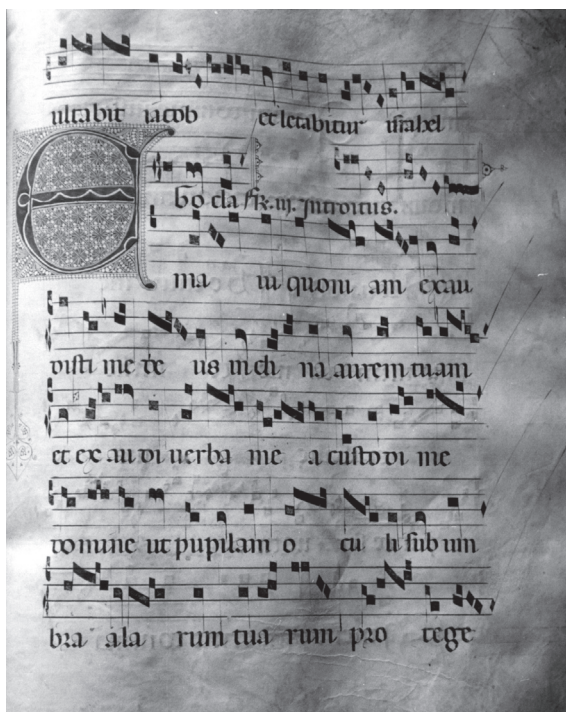 ultabit iacob et letabitur israhel
Ego cla fR. iij. Introitus.
ma ui quoni am exau
disti me de us incli na aurem tuam
et ex au di uerba me a custodi me
domine ut pupilam o cu li sub um
bra ala rum tua rum pro tege